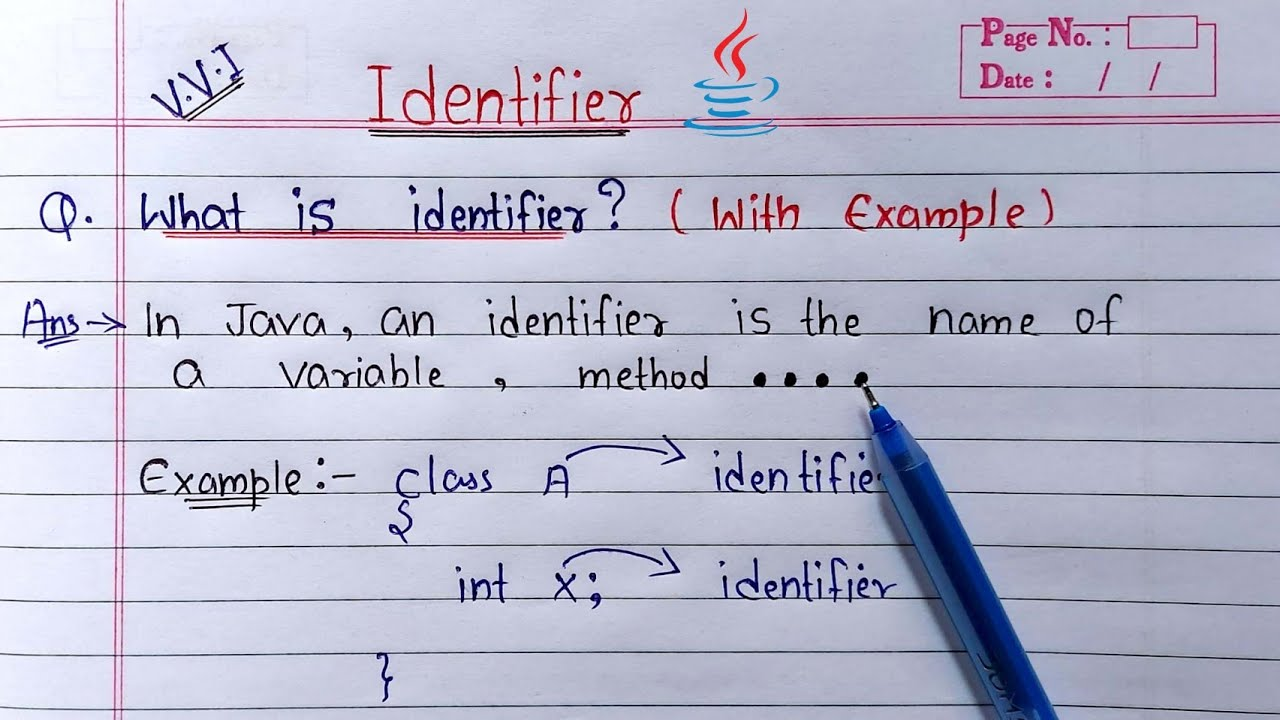 V.V.I
Identifier
Page No. :
Date : / /
Q. What is identifier? (With Example)
Ans→ In Java, an identifier is the name of
a variable, method ••••
Example:- class A → identifie
{
int x; → identifier
}